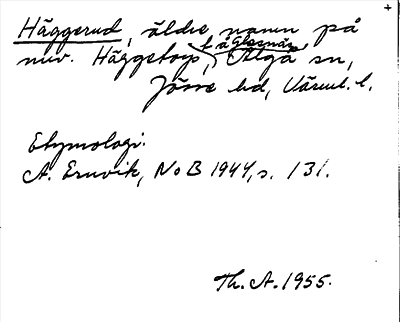 Häggerud, äldre namn på
nuv. Häggetorp, t. ä Glasnäs, Älgå sn,
Jösse hd, Värml. l.
Etymologi.
A. Ernvik, NoB 1944, s. 131.
Th. A. 1955.